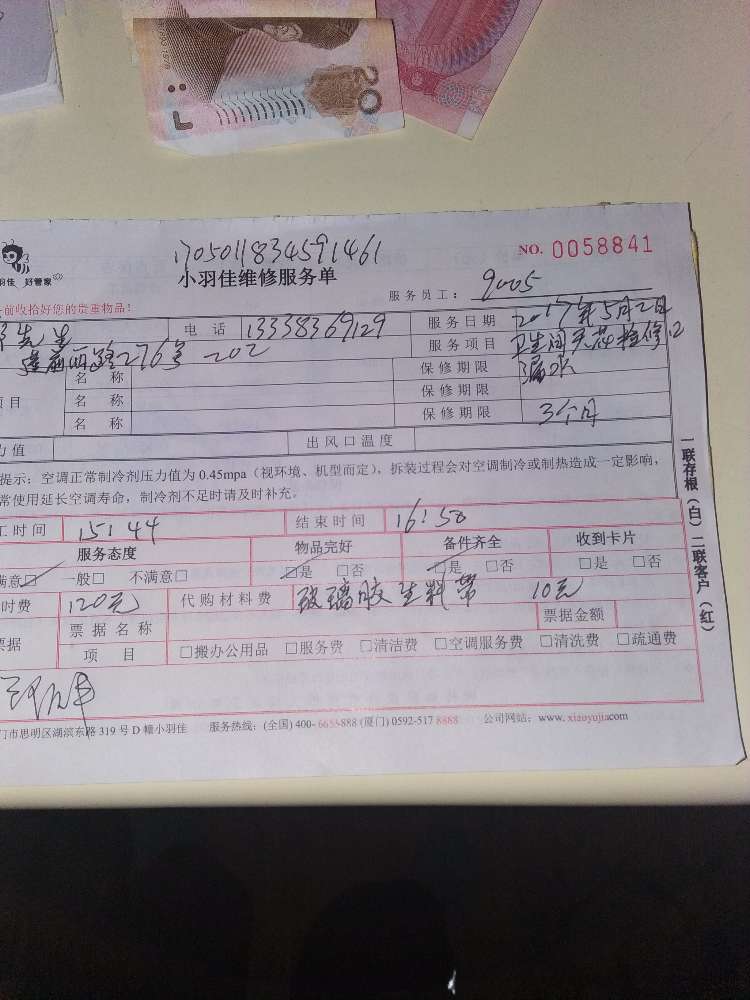 20
1705011834591461
NO. 0058841
小羽佳维修服务单
羽佳 好管家
服务员工： 9005
前收拾好您的贵重物品！
先生 电 话 13338369129 服务日期 2017年5月2日
西路276号 202 服务项目 卫生间 检修
名 称 保修期限 漏水
项目 名 称 保修期限
名 称 保修期限 3个月
力值 出风口温度
提示：空调正常制冷剂压力值为 0.45mpa（视环境、机型而定），拆装过程会对空调制冷或制热造成一定影响，
常使用延长空调寿命，制冷剂不足时请及时补充。
工时间 15:44 结束时间 16:50
服务态度 物品完好 备件齐全 收到卡片
满意□ 一般□ 不满意□ □是 □否 □是 □否 □是 □否
时费 120元 代购材料费 玻璃胶 生料带 10元
票据 票据名称 票据金额
项 目 □搬办公用品 □服务费 □清洁费 □空调服务费 □清洗费 □疏通费
门市思明区湖滨东路 319 号 D 幢小羽佳 服务热线：(全国) 400-6655-888 (厦门) 0592-517 8888 公司网站：www. xiaoyujia.com
一联存根（白）二联客户（红）